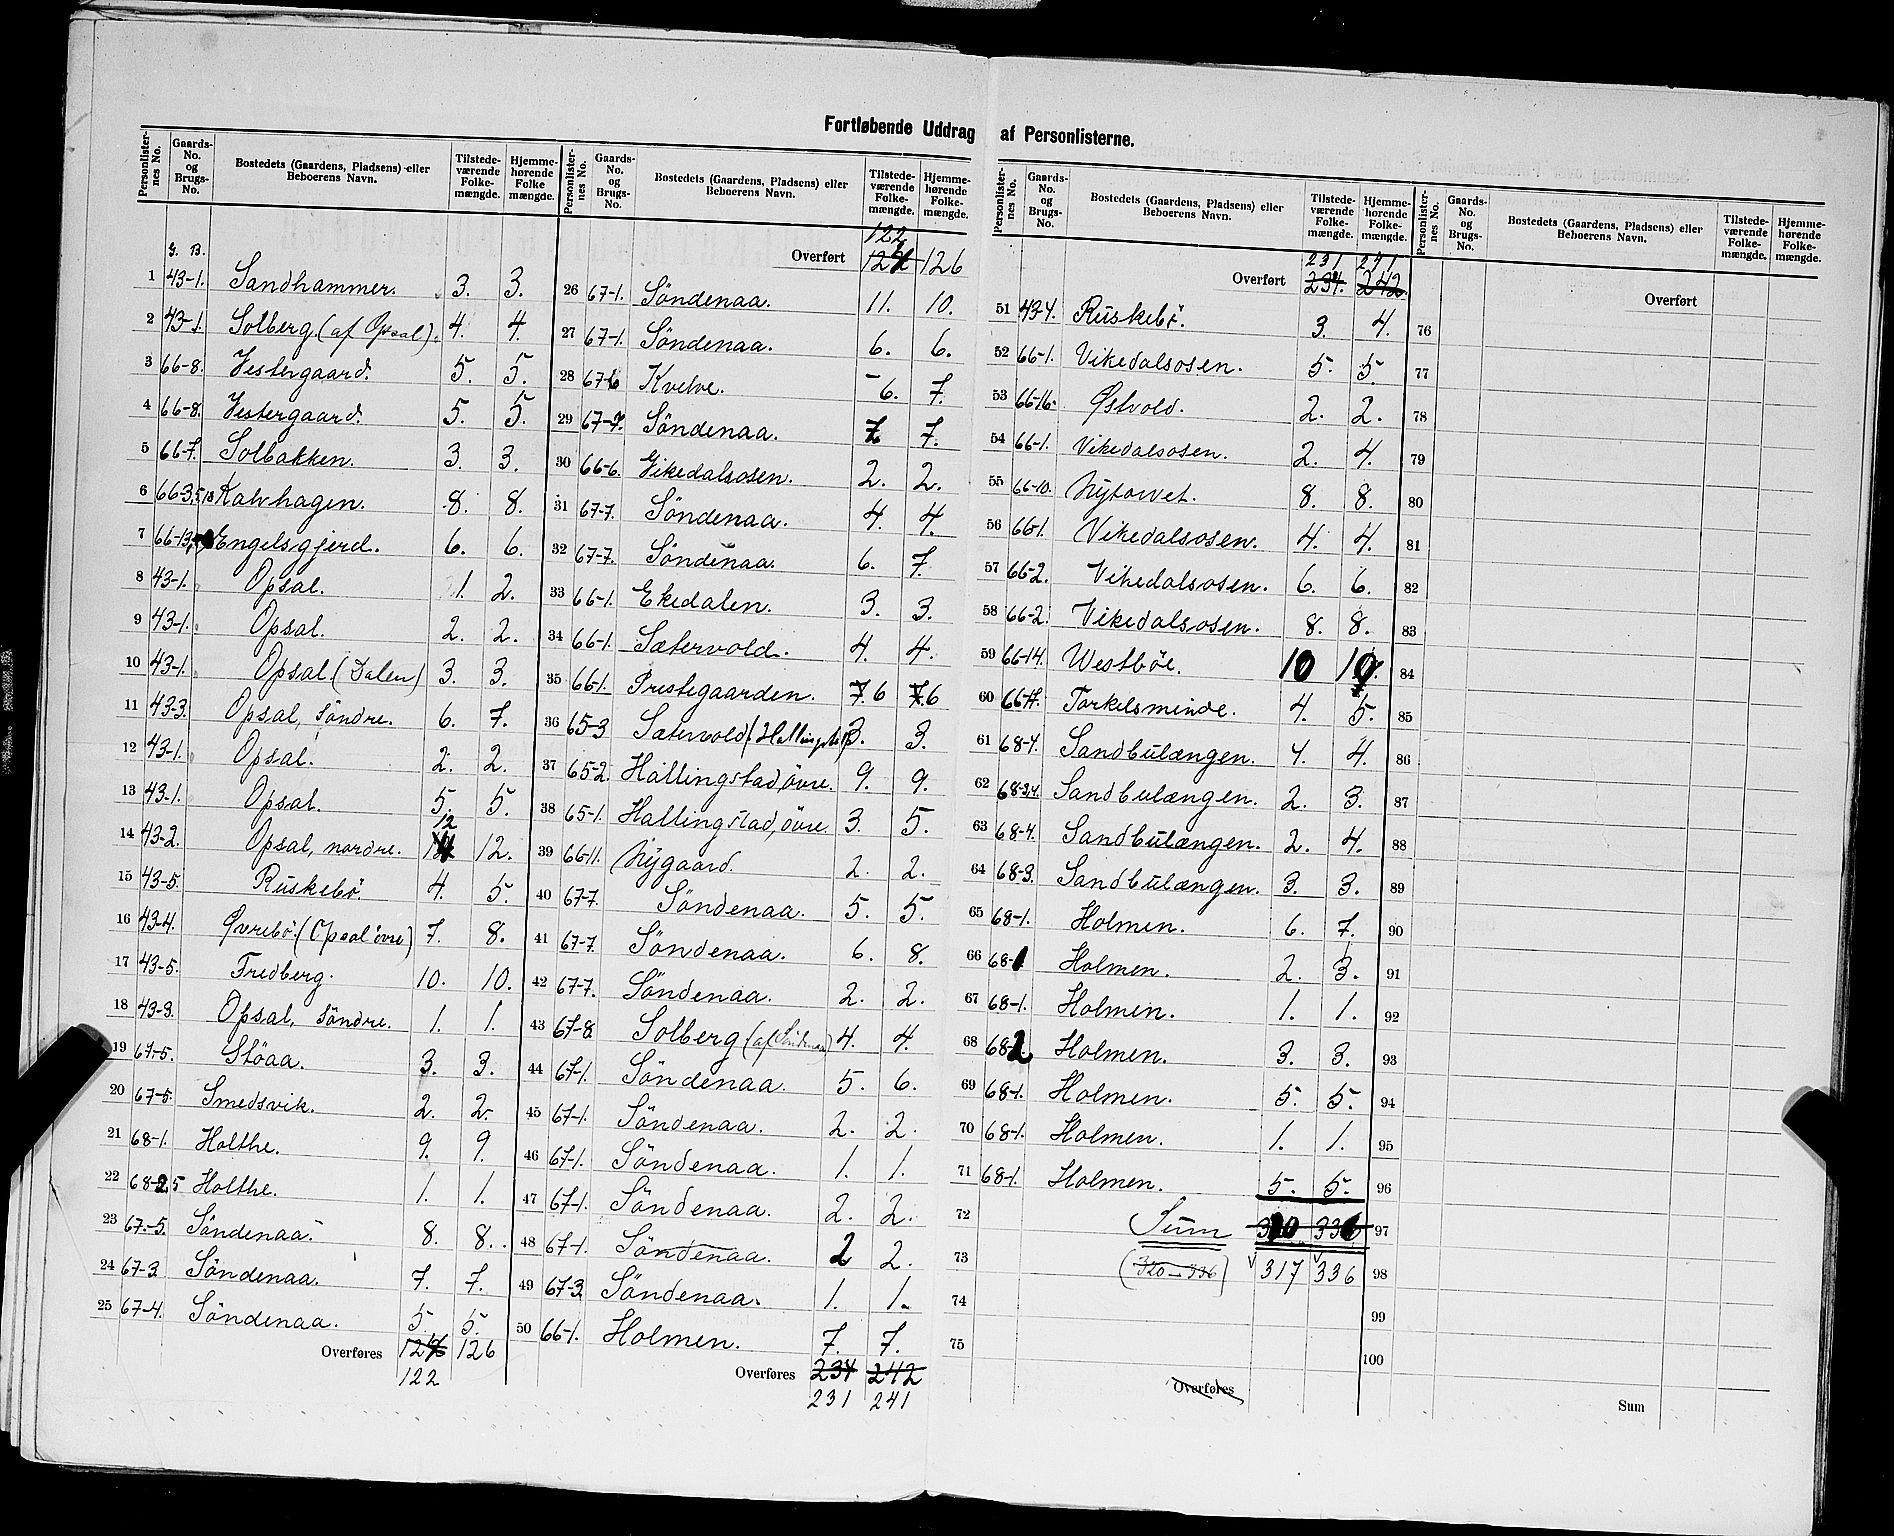 Fortløbende Uddrag af Personlisterne.
Personlister- nes No. | Gaards- No. og Brugs- No. | Bostedets (Gaardens, Pladsens) eller Beboerens Navn. | Tilstede- værende Folke- mængde. | Hjemme- hørende Folke mængde.
G. B.
1 43-1. Sandhammer. 3. 3.
2 43-1. Solberg (af Opsal). 4. 4.
3 66-8. Vestergaard. 5. 5.
4 66-8. Vestergaard. 5. 5.
5 66-7. Solbakken. 3. 3.
6 66-3,5,13 Kalvhagen. 8. 8.
7 66-13, Engelsgjerd. 6. 6.
8 43-1. Opsal. 1. 2.
9 43-1. Opsal. 2. 2.
10 43-1. Opsal (Dalen) 3. 3.
11 43-3. Opsal, söndre. 6. 7.
12 43-1. Opsal. 2. 2.
13 43-1. Opsal. 5. 5.
12
14 43-2. Opsal, nordre. 14 12.
15 43-5. Ruskebö. 4. 5.
16 43-4. Øvrebö. (Opsal övre) 7. 8.
17 43-5. Fredberg. 10. 10.
18 43-3. Opsal, söndre. 1. 1.
19 67-5. Stöaa. 3. 3.
20 67-5. Smedsvik. 2. 2.
21 68-1. Holthe. 9. 9.
22 68-2,5 Holthe. 1. 1.
23 67-5. Söndenaa. 8. 8.
24 67-3. Söndenaa. 7. 7.
25 67-4. Söndenaa. 5. 5.
Overføres 124 126
122
Personlister- nes No. | Gaards- No. og Brugs- No. | Bostedets (Gaardens, Pladsens) eller Beboerens Navn. | Tilstede- værende Folke- mængde. | Hjemme- hørende Folke- mængde.
122
Overført 124 126
26 67-1. Söndenaa. 11. 10.
27 67-1. Söndenaa. 6. 6.
28 67-6 Kvelve. 6. 7.
29 67-7. Söndenaa. 7. 7.
30 66-6. Vikedalsosen. 2. 2.
31 67-7. Söndenaa. 4. 4.
32 67-7. Söndenaa. 6. 7.
33 66-1. Ekedalen. 3. 3.
34 66-1. Sætervold. 4. 4.
35 66-1. Prestegaarden. 7. 6 7. 6
36 65-3 Sætervold 3. 3.
37 65-2. Hallingstad, övre. 9. 9.
38 65-1. Hallingstad, övre. 3. 5.
39 66-11. Nygaard. 2. 2.
40 67-7. Söndenaa. 5. 5.
41 67-7. Söndenaa. 6. 8.
42 67-7. Söndenaa. 2. 2.
43 67-8. Solberg (af Söndenaa) 4. 4.
44 67-1. Söndenaa. 5. 6.
45 67-1. Söndenaa. 2. 2.
46 67-1. Söndenaa. 1. 1.
47 67-1. Söndenaa. 2. 2.
48 67-1. Söndenaa. 2 2.
49 67-3. Söndenaa. 1. 1.
50 66-1. Holmen. 7. 7.
Overføres 234 242
231 241
Personlister- nes No. | Gaards- No. og Brugs- No. | Bostedets (Gaardens, Pladsens) eller Beboerens Navn. | Tilstede- værende Folke- mængde. | Hjemme- hørende Folke- mængde.
231 241
Overført 234. 242.
51 43-4. Ruskebö. 3. 4.
52 66-1. Vikedalsosen. 5. 5.
53 66-16. Østvold. 2. 2.
54 66-1. Vikedalsosen. 2. 4.
55 66-10. Nytorvet. 8. 8.
56 66-1. Vikedalsosen. 4. 4.
57 66-2. Vikedalsosen. 6. 6.
58 66-2. Vikedalsosen. 8. 8.
59 66-14. Westböe. 10 10.
60 66-4. Torkelsminde. 4. 5.
61 68-4. Sandbulængen. 4. 4.
62 68-3,4. Sandbulængen. 2. 3.
63 68-4. Sandbulængen. 2. 4.
64 68-3. Sandbulængen. 3. 3.
65 68-1. Holmen. 6. 7.
66 68-1 Holmen. 2. 3.
67 68-1. Holmen. 1. 1.
68 68-2 Holmen. 3. 3.
69 68-1. Holmen. 5. 5.
70 68-1. Holmen. 1. 1.
71 68-1. Holmen. 5. 5.
72 Sum 320 336
73 (320-336) 317 336
74
75
Overføres
Personlister- nes No. | Gaards- No. og Brugs- No. | Bostedets (Gaardens, Pladsens) eller Beboerens Navn. | Tilstede- værende Folke- mængde. | Hjemme- hørende Folke- mængde.
Overført
76
77
78
79
80
81
82
83
84
85
86
87
88
89
90
91
92
93
94
95
96
97
98
99
100
Sum